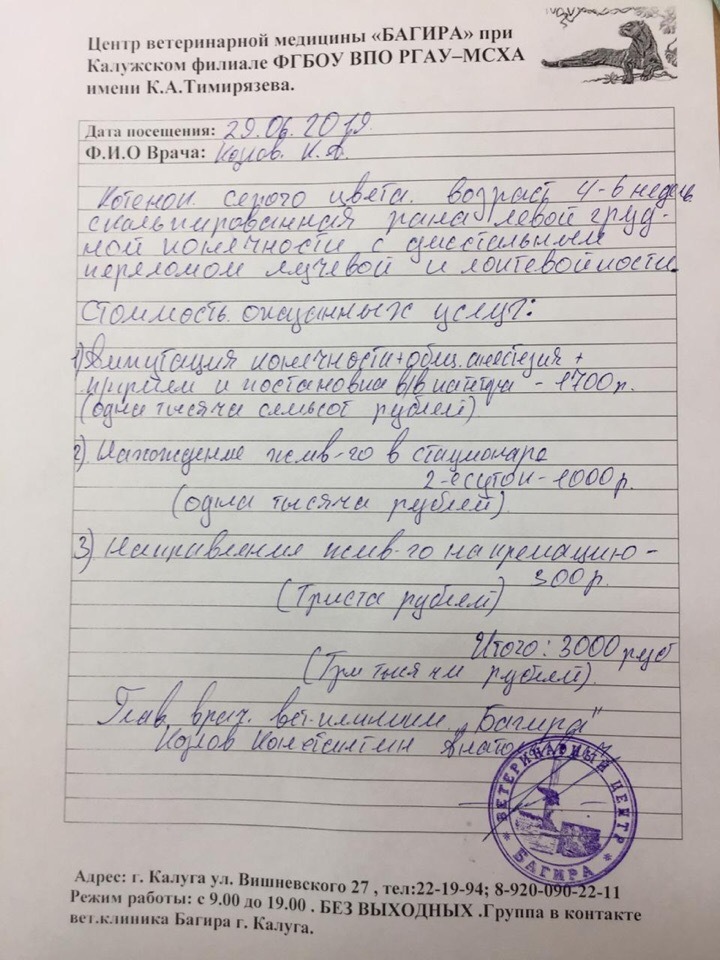 Центр ветеринарной медицины «БАГИРА» при
Калужском филиале ФГБОУ ВПО РГАУ–МСХА
имени К.А.Тимирязева.
Дата посещения: 29.06.2019.
Ф.И.О Врача: Козлов. К.А.
Котенок серого цвета. возраст 4-6 недель
скальпированная рана левой груд-
ной конечности с дистальным
переломом лучевой и локтевой кости.
Стоимость оказанных услуг:
1) Ампутация конечности + общ. анестезия +
и постановка в/в катетера - 1700 р.
(одна тысяча семьсот рублей)
2). Нахождение жив-го в стационаре
2-е суток - 1000 р.
(одна тысяча рублей).
3) Направление жив-го на кремацию -
300 р.
(Триста рублей)
Итого: 3000 руб
(Три тысячи рублей).
Глав. врач. вет. клиники „Багира"
Козлов Константин
ВЕТЕРИНАРНЫЙ ЦЕНТР
* БАГИРА *
Адрес: г. Калуга ул. Вишневского 27 , тел:22-19-94; 8-920-090-22-11
Режим работы: с 9.00 до 19.00 . БЕЗ ВЫХОДНЫХ .Группа в контакте
вет.клиника Багира г. Калуга.